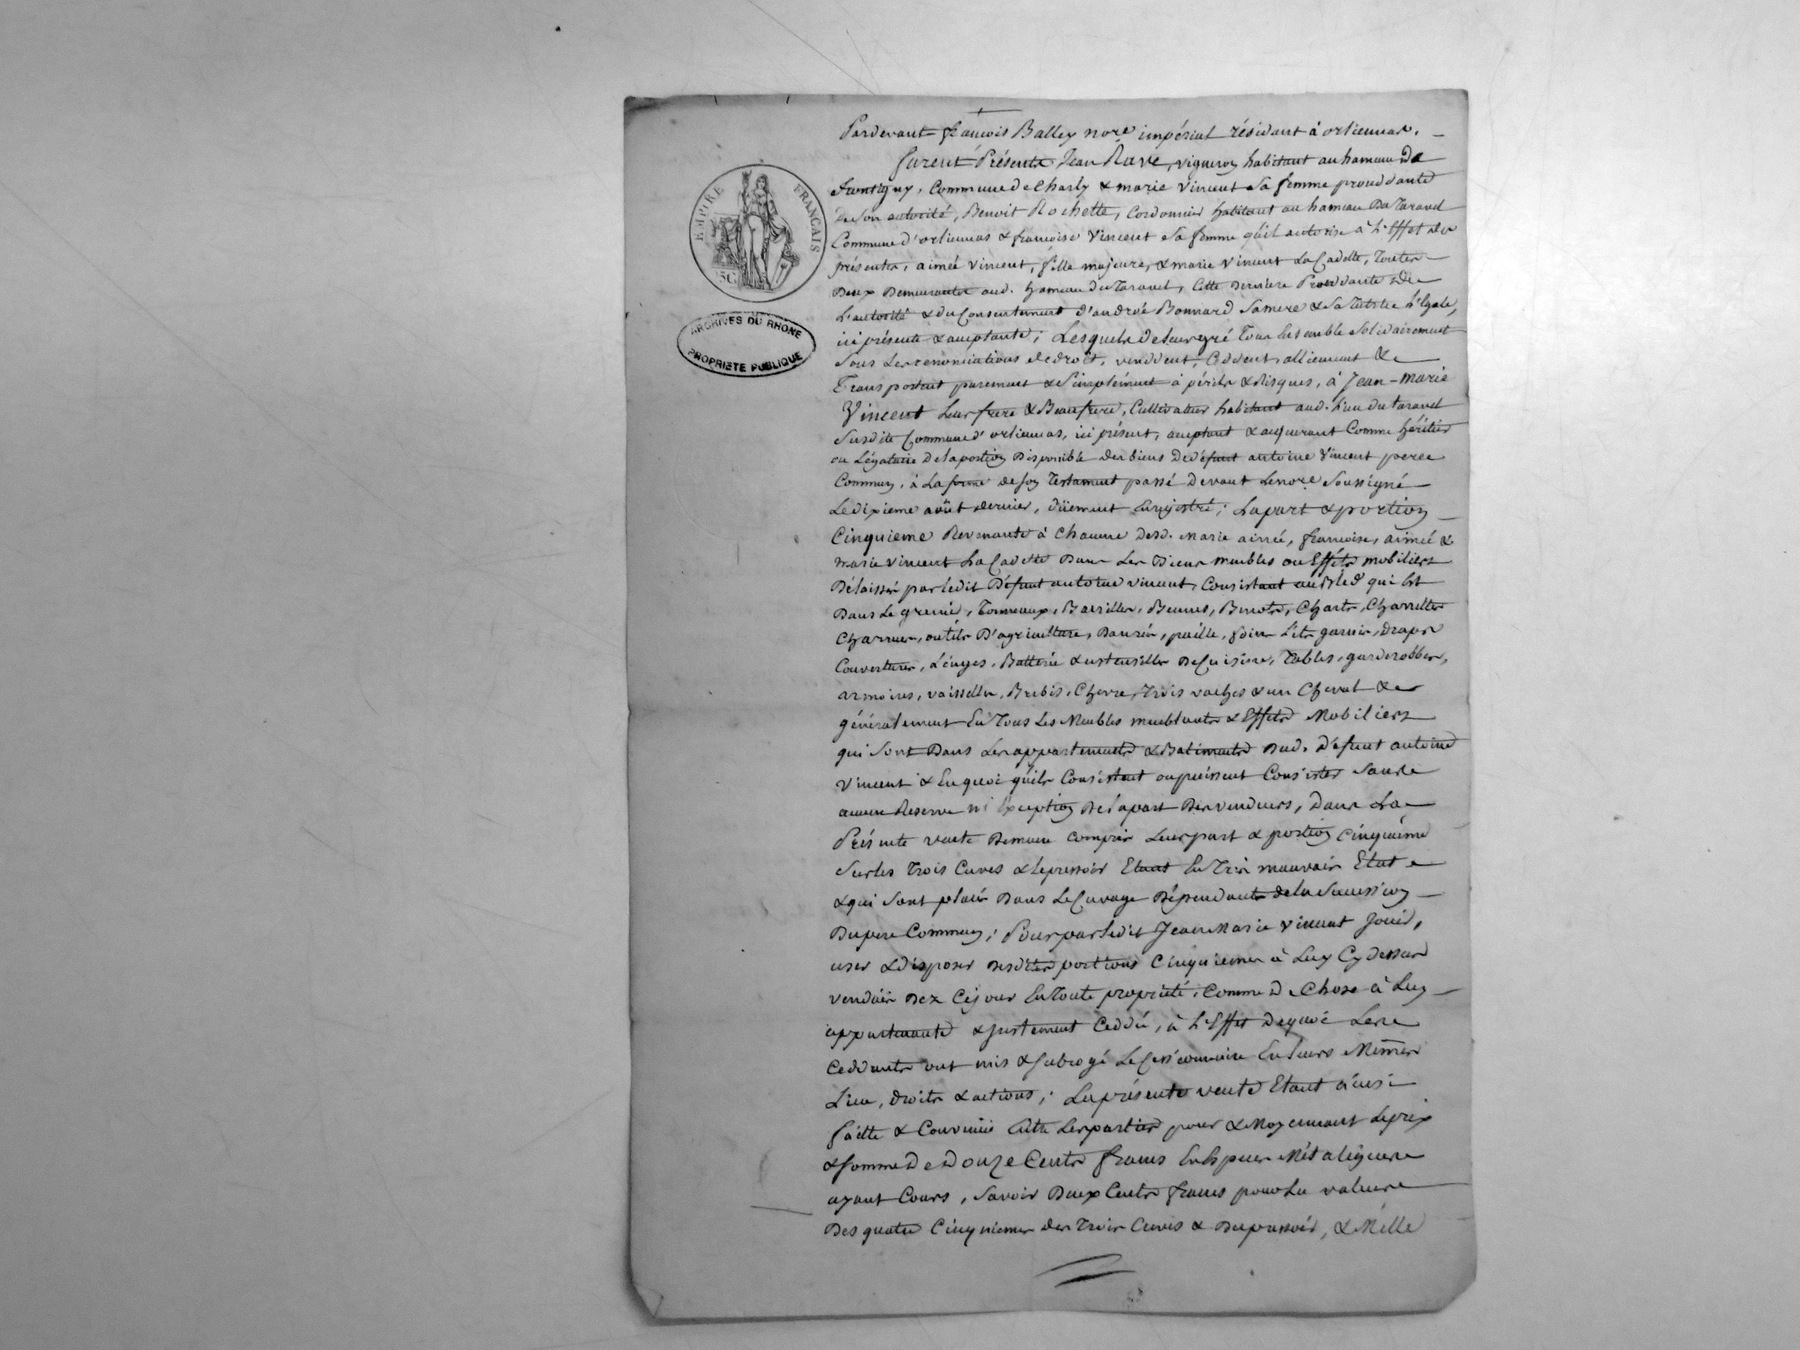 Pardevant françois Balley nore impérial résidant à orliennas.
furent Présents Jean Rave, vigneron habitant au hameau De
frontigny, Commune de Charly & marie Vincent Sa femme procédante
de Son autorité, Benoit Rochette, Cordonnier habitant au hameau Du Taravel
Commune d'orliennas & françoise Vincent Sa femme qu'il autorise à L'Effet des
présentes, aimée Vincent, fille majeure, & marie Vincent La Cadette, Toutes
Deux Demeurantes aud. hameau du Taravel, Cette Derniere Procédante De
L'autorité & du Consentement d'andrée Bonnard Sa mere & Sa Tutrice L'Egale,
ici présente & acceptante; Lesquels de leur gré Tous Ensemble Solidairement
Sous Les renonciations de droit, vendent, Cedent, allienent &
Transportent purement & Simplement à périls & Risques, à Jean-Marie
Vincent Leur frere & Beaufrere, Cultivateur habitant aud. Lieu du taravel
Susdite Commune d'orliennas, ici présent, acceptant & acquerant Comme héritier
ou Légataire De la portion Disponible des biens De défunt antoine Vincent pere
Commun, à La forme de Son Testament passé Devant Le nore Soussigné
Le dixieme août dernier, düement Enrgistré; La part & portion
Cinquieme Revenante à Chacune desd. Marie ainée, françoise, aimée &
marie vincent La Cadette Dans Les Biens meubles ou Effets mobiliers
Délaissés par Ledit Défunt antoine vincent, Consistant au Bled qui Est
Dans Le grenié, Tonneaux, Barilles, Bennes, Benots, Chars, Charrettes
Charrues, outils D'agriculture, Danrés, paille, foin Lits garnis, draps
Couvertures, Linges, Batterie & ustensilles De Cuisine, Tables, garderobbes,
armoires, vaisselles, Brebis, Chevre, Trois vaches & un Cheval &
généralement En Tous Les Meubles meublants & Effets Mobiliers
qui Sont Dans Les appartements & Batiments Dud. Défunt antoine
Vincent & En quoi qu'ils Consistent ou puissent Consister Sans
aucune Reserve ni Exception De la part Des vendeurs, Dans La
Présente vente Demeure compris Leur part & portion cinquième
Sur les Trois Cuves & Le pressoir Etant En Très mauvais Etat
& qui Sont placés Dans Le Cuvage Dépendant de la Succession
Du pere Commun; Pour par Ledit Jean Marie Vincent Jouir,
user & disposer desdites portions Cinquiemes à Luy Cy dessus
vendües Dez Cejour En Toute propriété, Comme De Chose à Luy
appartenante & justement Ceddée, à L'Effet de quoi Les
Ceddants ont mis & subrogé Le Cessionnaire En Leurs Mêmes
Lieu, droits & actions; La présente vente Etant ainsi
faitte & Convenüe Entre Les parties pour & Moyennant Le prix
& Somme De Douze Cents francs En Espèces Métaliques
ayant Cours, Savoir Deux Cents francs pour La valeur
Des quatre Cinquiemes des Trois Cuves & Du pressoir, & Mille
EMPIRE FRANÇAIS
ARCHIVES DU RHONE
PROPRIETE PUBLIQUE